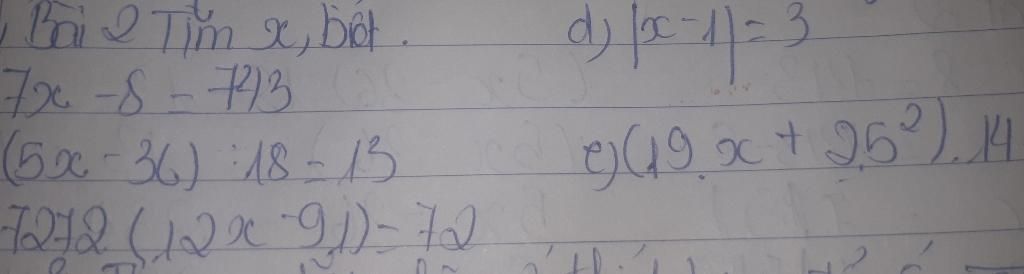 Bài 2 Tìm x, biết. d) |x-1| = 3
7x - 8 = 713
(5x - 36) : 18 = 13 e) (19.x + 2.5²).14
7272 (12x - 91) = 72